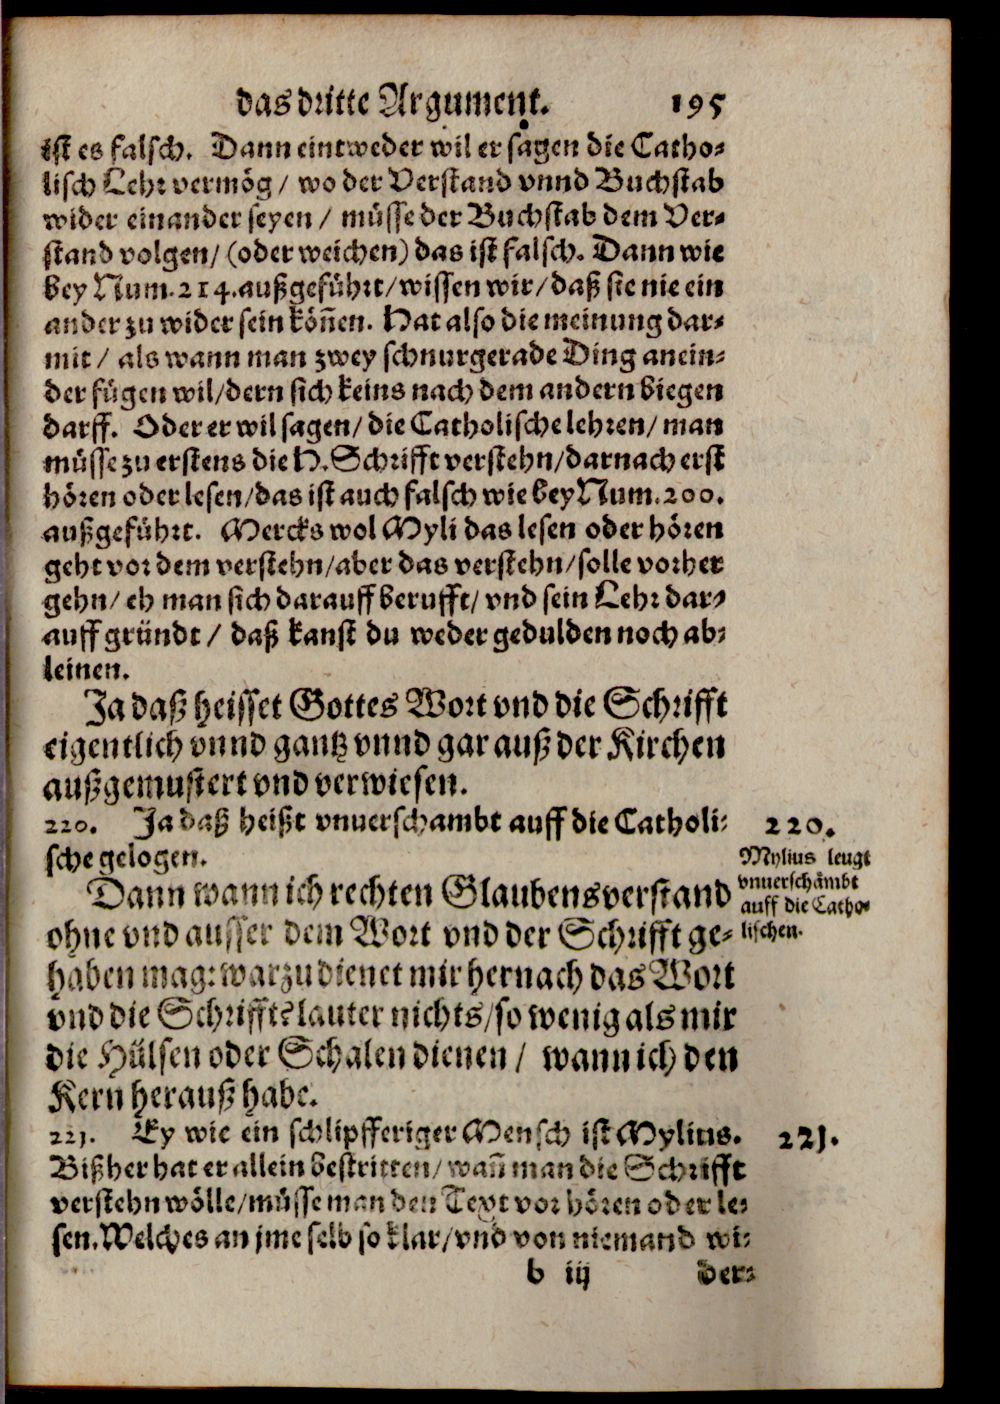 das dritte Argument. 195
ist es falsch. Dann eintweder wil er sagen die Catho-
lisch Lehr vermög / wo der Verstand vnnd Buchstab
wider einander seyen / müsse der Buchstab dem Ver-
stand volgen / (oder weichen) das ist falsch. Dann wie
bey Num. 214. außgeführt / wissen wir / daß sie nie ein
ander zu wider sein köñen. Hat also die meinung dar-
mit / als wann man zwey schnurgerade Ding anein-
der fügen wil / dern sich keins nach dem andern biegen
darff. Oder er wil sagen / die Catholische lehren / man
müsse zu erstens die H. Schrifft verstehn / darnach erst
hören oder lesen / das ist auch falsch wie bey Num. 200.
außgeführt. Mercks wol Myli das lesen oder hören
geht vor dem verstehn / aber das verstehn / solle vorher
gehn / eh man sich darauff berufft / vnd sein Lehr dar-
auff gründt / daß kanst du weder gedulden noch ab-
leinen.
Ja daß heisset Gottes Wort vnd die Schrifft
eigentlich vnnd gantz vnnd gar auß der Kirchen
außgemustert vnd verwiesen.
220. Ja daß heißt vnuerschambt auff die Catholi-
sche gelogen.
220.
Mylius leugt
vnuerschämbt
auff die Catho-
lischen.
Dann wann ich rechten Glaubensverstand
ohne vnd ausser dem Wort vnd der Schrifft ge-
haben mag: warzu dienet mir hernach das Wort
vnd die Schrifft? lauter nichts / so wenig als mir
die Hülsen oder Schalen dienen / wann ich den
Kern herauß habe.
221. Ey wie ein schlipfferiger Mensch ist Mylius.
221.
Bißher hat er allein bestritten / wañ man die Schrifft
verstehn wölle / müsse man den Text vor hören oder le-
sen. Welches an jme selb so klar / vnd von niemand wi-
b iij der-